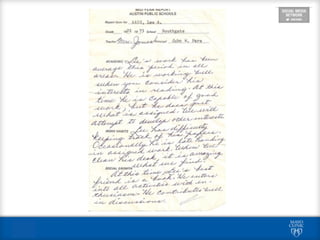 SOCIAL MEDIA
NETWORK
MID YEAR REPORT
AUSTIN PUBLIC SCHOOLS
Report form for Lee A.
Grade School Southgate
Teacher Mrs. John W. Para
ACADEMIC Lee's work has been
average this period in all
areas. He is working well
when you consider his
interests in reading. At this
time he is capable of good
work, but he does just
what is assigned. We will
attempt to develop other interests
WORK HABITS Lee has difficulty
keeping track of his papers.
Occasionally he is late handing
in assigned work. When we
clean his desk, it is amazing
what we find!
SOCIAL GROWTH
At this time Lee's best
friend is a book. He enters
into all activities with
enthusiasm. He contributes well
in discussions.
MAYO
CLINIC